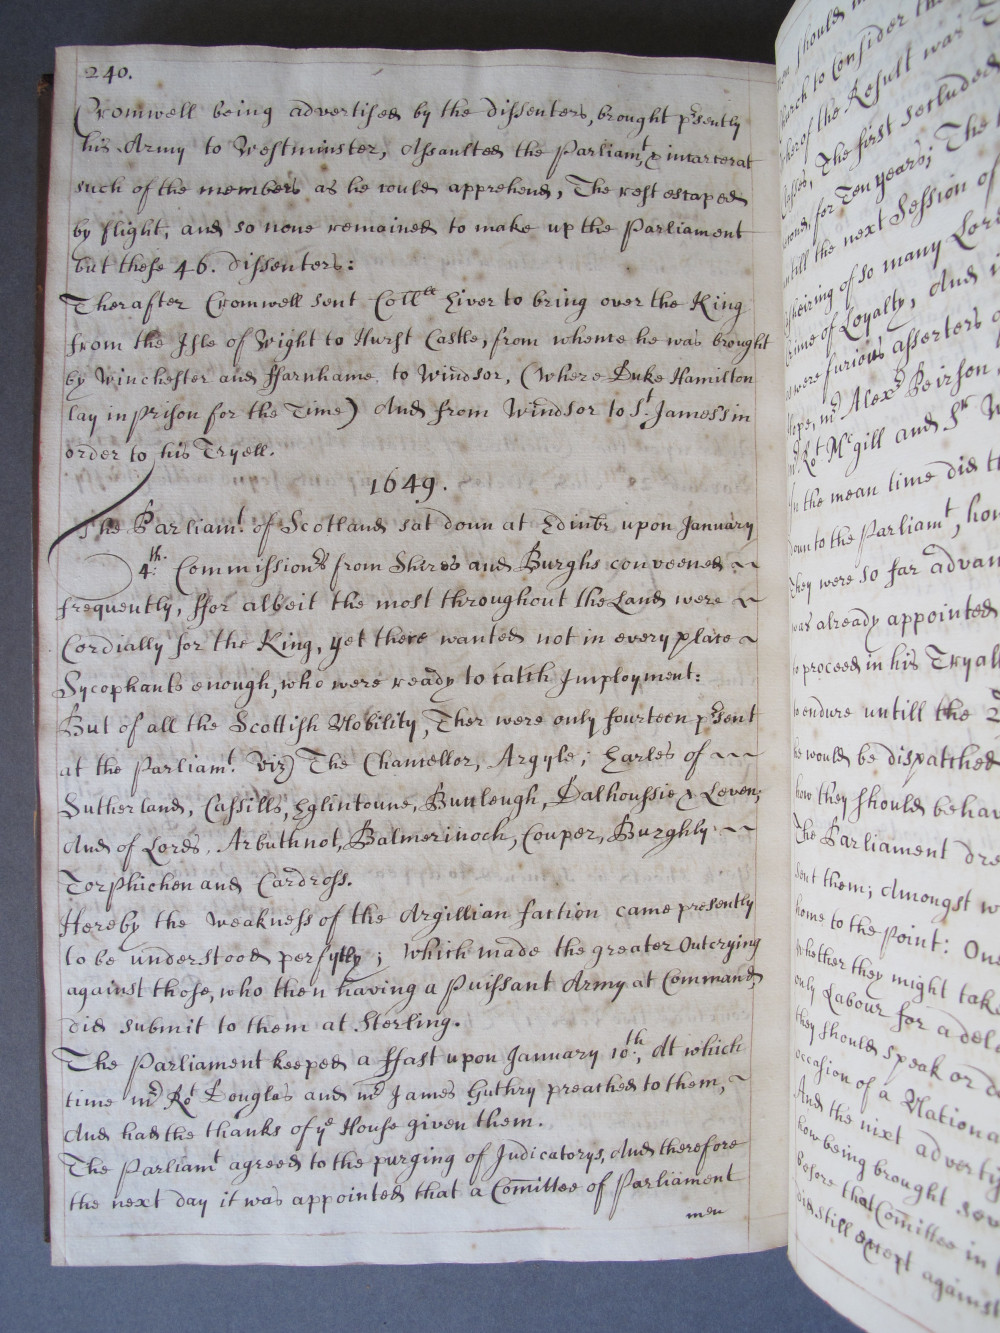 240.
Cromwell being advertised by the dissenters, brought p^rsently
his Army to Westminster, Assaulted the Parliam^t, & incarcerat
such of the members as he could apprehend, The rest escaped
by flight, and so none remained to make up the Parliament
but these 46. dissenters:
Therafter Cromwell sent Coll^ll to bring over the King
from the Isle of Wight to Hurst Castle, from whence he was brought
by Winchester and ffarnhame to Windsor, (where Duke Hamilton
lay in prison for the Time) And from Windsor to S^t. James's in
order to his Tryell.
1649.
The Parliam^t. of Scotland sat doun at Edinbr upon January
4^th. Commission^rs from Shires and Burghs conveened ~
frequently, ffor albeit the most throughout the Land were ~
Cordially for the King, yet there wanted not in every place ~
Sycophants enough, who were ready to catch Imployment:
But of all the Scottish Nobility, Ther were only fourteen p^rsent
at the Parliam^t. viz) The Chancellor, Argyle; Earles of ~ ~ ~
Sutherland, Cassills, Eglintoune, Buccleugh, Dalhoussie & Leven;
And of Lords. Arbuthnot, Balmerinoch, Couper, Burghly ~ ~
Torphichen and Cardross.
Hereby the weakness of the Argillian faction came presently
to be understood perfytly; which made the greater Outcrying
against those, who then having a puissant Army at Command,
did submit to them at Sterling.
The Parliament keeped a ffast upon January 10^th, At which
time m^r Ro^t Douglas and m^r James Guthry preached to them, ~
And had the thanks of y^e House given them.
The Parliam^t agreed to the purging of Judicatorys, And therefore
the next day it was appointed that a Comittee of Parliament
men
should
to Consider the
of the Result was
The first secluded
for Ten years; The
untill the next Session of
of so many Lor
Crime of Loyalty, And i
were furious asserters o
Alex^r Peirson,
Ro^t M^cgill and S^r W
In the mean time did t
doun to the Parliam^t, how
They were so far advan
was already appointed
to proceed in his Tryall
to endure untill the 2
he would be dispatched
how they should behav
The Parliament dre
sent them; Amongst w
home to the point: One
Whether they might take
only Labour for a dela
they should speak or d
occasion of a Nationa
And the next adverty
how being brought sev
before that Comittee in
did still except against